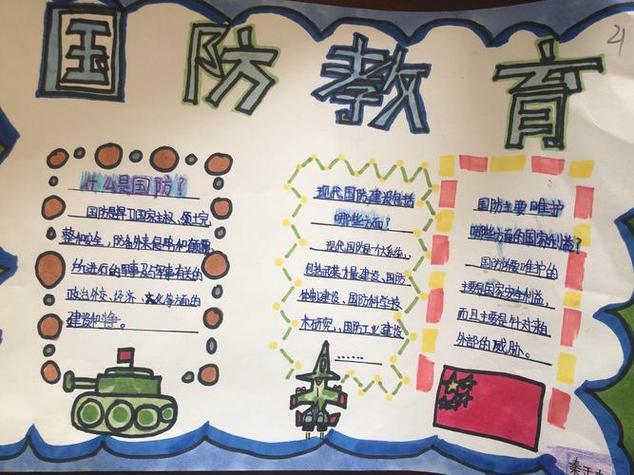 国防教育
21
什么是国防?
国防是为了国家主权、领土完
整和安全,防备外来侵略和颠覆,
所进行的军事及与军事有关的
政治外交、经济、文化等方面的
建设和斗争。
现代国防建设包括
哪些方面?
现代国防是个系统,
包括武装力量建设、国防
体制建设、国防科学技
术研究、国防工业建设
……
国防主要维护
哪些方面的国家利益?
国防所要维护的
主要是国家安全利益,
而且主要是针对来自
外部的威胁。